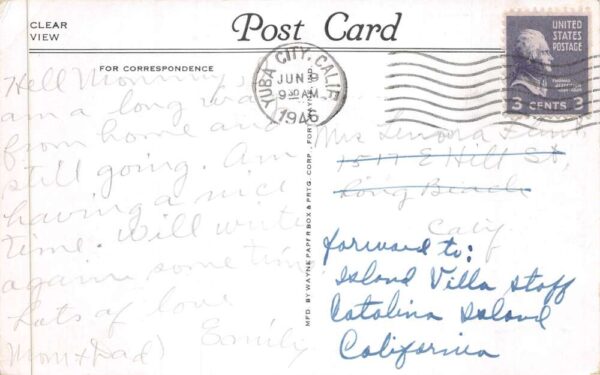 CLEAR
VIEW
Post Card
FOR CORRESPONDENCE
YUBA CITY, CALIF.
JUN 9
9 30 AM
1946
UNITED
STATES
POSTAGE
THOMAS JEFFERSON
3 CENTS 3
Hell Mommy,
am a long way
from home and
still going. Am
having a nice
time. Will write
again some time
Lots of love
Emily
Mom + Dad)
MFD. BY WAYNE PAPER BOX & PRTG. CORP., FORT WAYNE, IND.
Mrs Lenora
1517 E Hill St,
Long Beach
Calif
forward to:
Island Villa Staff
Catalina Island
California